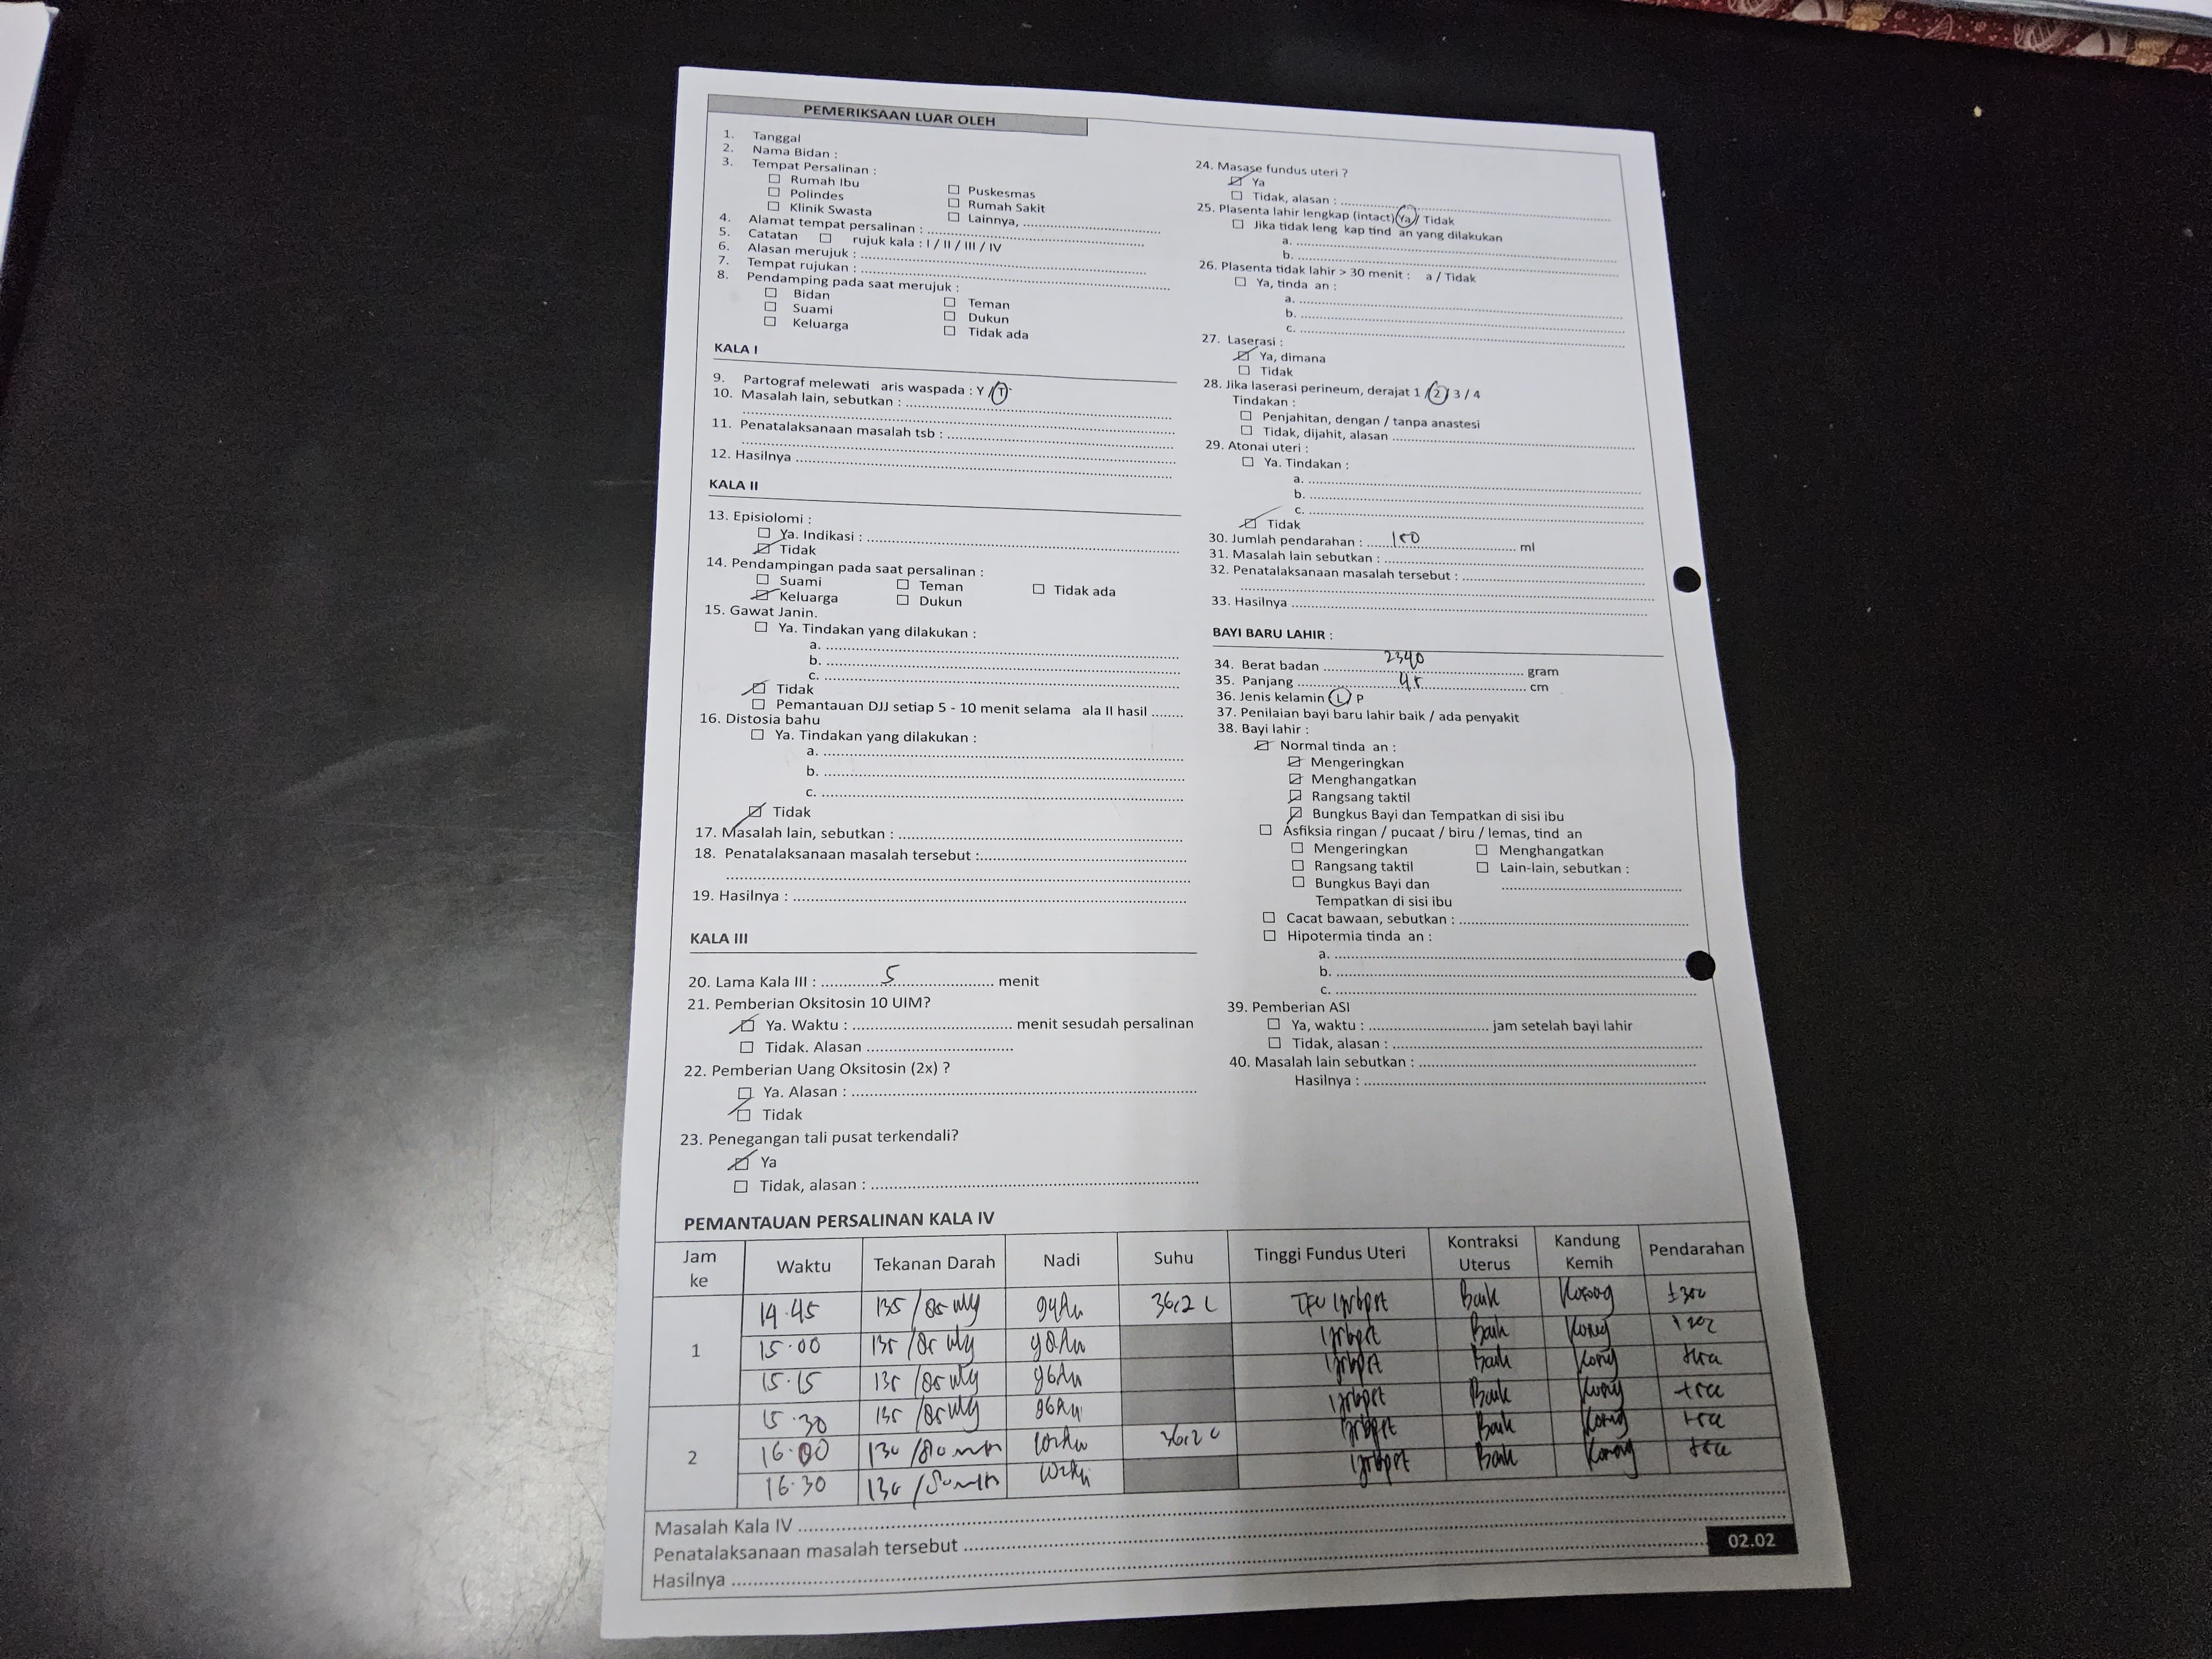 PEMERIKSAAN LUAR OLEH
1. Tanggal
2. Nama Bidan :
3. Tempat Persalinan :
Rumah Ibu
Puskesmas
Polindes
Rumah Sakit
Klinik Swasta
Lainnya,
4. Alamat tempat persalinan :
5. Catatan rujuk kala : I / II / III / IV
6. Alasan merujuk :
7. Tempat rujukan :
8. Pendamping pada saat merujuk :
Bidan
Teman
Suami
Dukun
Keluarga
Tidak ada
KALA I
9. Partograf melewati aris waspada : Y / T
10. Masalah lain, sebutkan :
11. Penatalaksanaan masalah tsb :
12. Hasilnya
KALA II
13. Episiolomi :
Ya. Indikasi :
Tidak
14. Pendampingan pada saat persalinan :
Suami Teman Tidak ada
Keluarga Dukun
15. Gawat Janin.
Ya. Tindakan yang dilakukan :
a.
b.
c.
Tidak
Pemantauan DJJ setiap 5 - 10 menit selama ala II hasil
16. Distosia bahu
Ya. Tindakan yang dilakukan :
a.
b.
c.
Tidak
17. Masalah lain, sebutkan :
18. Penatalaksanaan masalah tersebut :
19. Hasilnya :
KALA III
20. Lama Kala III : 5 menit
21. Pemberian Oksitosin 10 UIM?
Ya. Waktu : menit sesudah persalinan
Tidak. Alasan
22. Pemberian Uang Oksitosin (2x) ?
Ya. Alasan :
Tidak
23. Penegangan tali pusat terkendali?
Ya
Tidak, alasan :
24. Masase fundus uteri ?
Ya
Tidak, alasan :
25. Plasenta lahir lengkap (intact) Ya / Tidak
Jika tidak leng kap tind an yang dilakukan
a.
b.
26. Plasenta tidak lahir > 30 menit : a / Tidak
Ya, tinda an :
a.
b.
c.
27. Laserasi :
Ya, dimana
Tidak
28. Jika laserasi perineum, derajat 1 / 2 / 3 / 4
Tindakan :
Penjahitan, dengan / tanpa anastesi
Tidak, dijahit, alasan
29. Atonai uteri :
Ya. Tindakan :
a.
b.
c.
Tidak
30. Jumlah pendarahan : 150 ml
31. Masalah lain sebutkan :
32. Penatalaksanaan masalah tersebut :
33. Hasilnya
BAYI BARU LAHIR :
34. Berat badan 2340 gram
35. Panjang 45 cm
36. Jenis kelamin L / P
37. Penilaian bayi baru lahir baik / ada penyakit
38. Bayi lahir :
Normal tinda an :
Mengeringkan
Menghangatkan
Rangsang taktil
Bungkus Bayi dan Tempatkan di sisi ibu
Asfiksia ringan / pucaat / biru / lemas, tind an
Mengeringkan Menghangatkan
Rangsang taktil Lain-lain, sebutkan :
Bungkus Bayi dan
Tempatkan di sisi ibu
Cacat bawaan, sebutkan :
Hipotermia tinda an :
a.
b.
c.
39. Pemberian ASI
Ya, waktu : jam setelah bayi lahir
Tidak, alasan :
40. Masalah lain sebutkan :
Hasilnya :
PEMANTAUAN PERSALINAN KALA IV
Jam ke Waktu Tekanan Darah Nadi Suhu Tinggi Fundus Uteri Kontraksi Uterus Kandung Kemih Pendarahan
1 14.45 135/85 36,2 C TFU Baik Kosong
15.00 135/85 Baik
15.15 135/85 Baik
15.30 135/85 Baik
2 16.00 130/80 36,2 C Baik
16.30 130/80 Baik Kosong
Masalah Kala IV
Penatalaksanaan masalah tersebut
Hasilnya
02.02